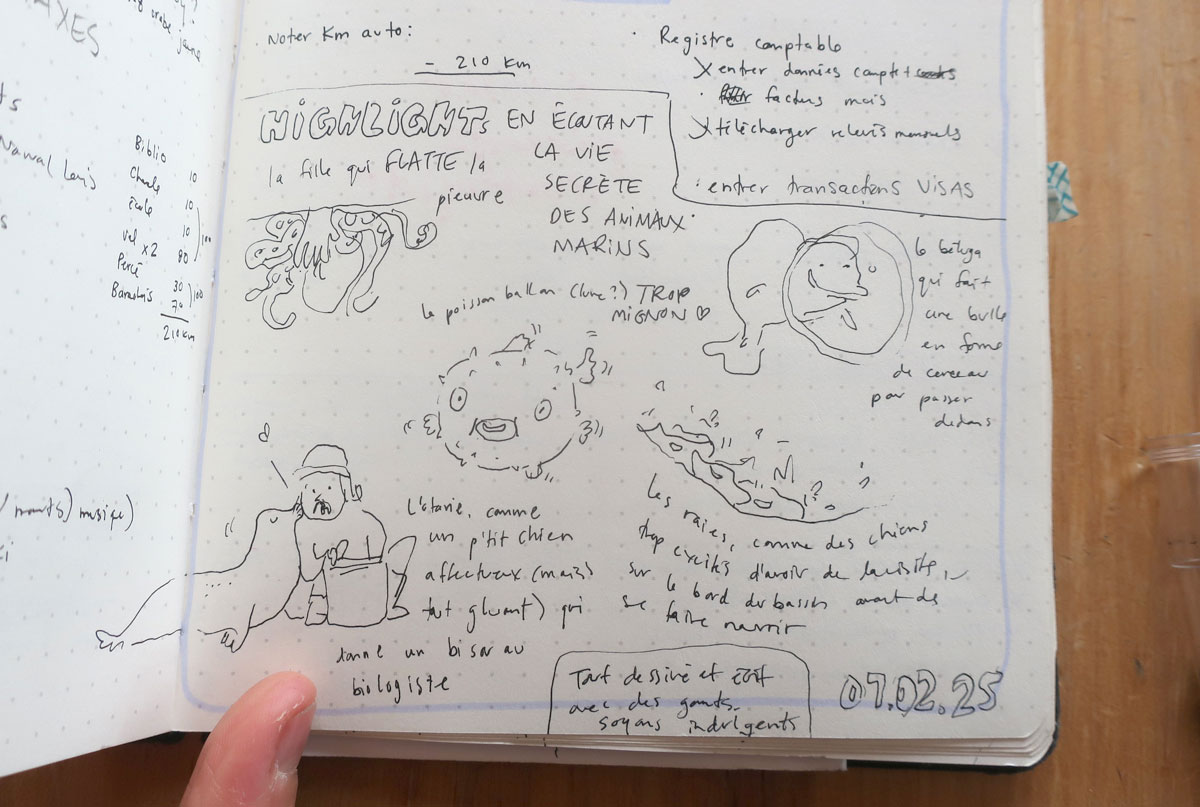 AXES
Biblio
Charle 10
École 10
vel x2 10
Percé 80
30
70
210 km
100
100
musique)
Noter Km auto:
- 210 km
· Registre comptable
X entrer données compte +
· factures mois
X télécharger relevés mensuels
· entrer transactions VISAS
HIGHLIGHTS EN ÉCOUTANT
LA VIE
SECRÈTE
DES ANIMAUX
MARINS
la fille qui FLATTE la
pieuvre
le poisson ballon (lune?) TROP
MIGNON ♡
le béluga
qui fait
une bulle
en forme
de cerceau
pour passer
dedans
L'otarie, comme
un p'tit chien
affectueux (mais
tout gluant) qui
donne un bisou au
biologiste
Les raies, comme des chiens
trop excités d'avoir de la visite,
sur le bord du bassin avant de
se faire nourrir
Tout dessiné et écrit
avec des gants.
soyons indulgents
07.02.25